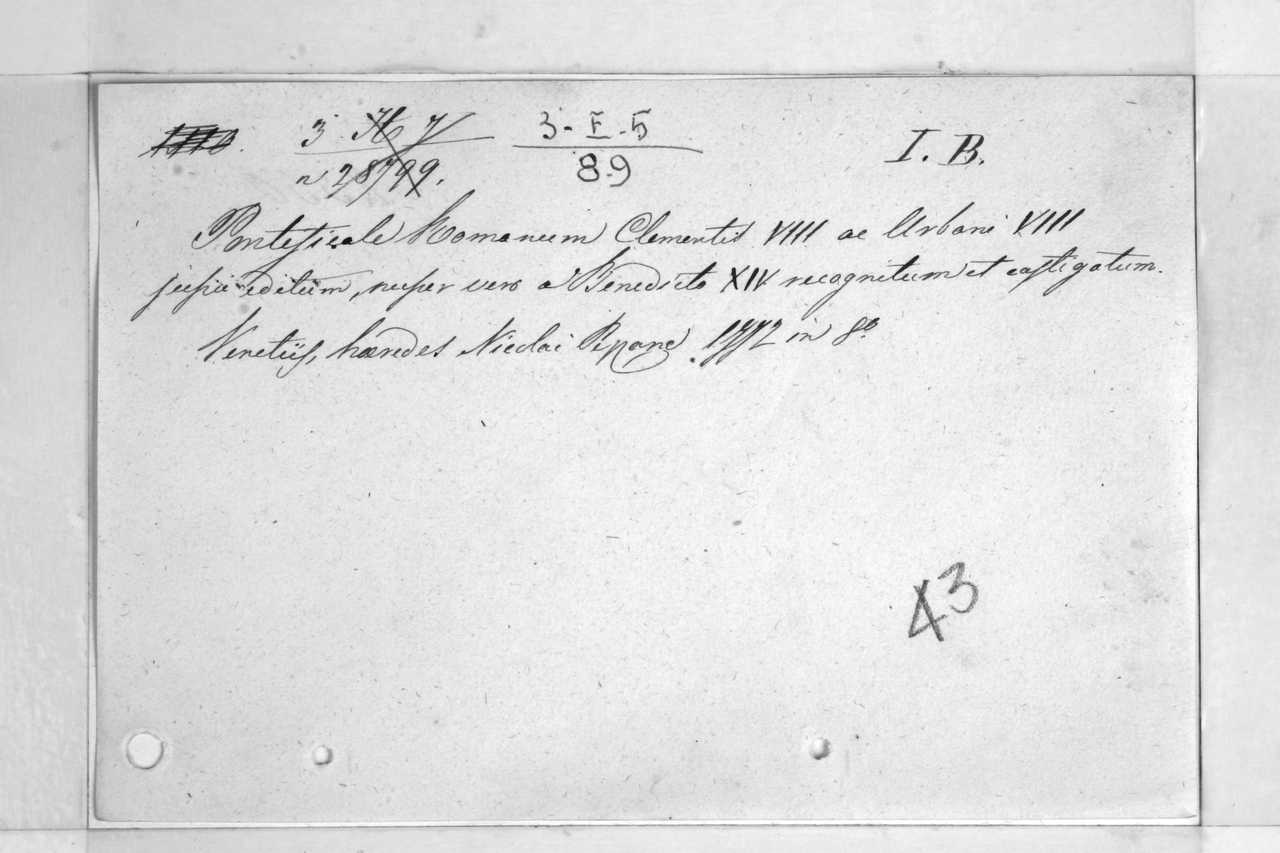 3 H 7 3-E-5 I. B.
n 28799. 89
Pontificale Romanum Clementis VIII ac Urbani VIII
jussu editum, nuper vero a Benedicto XIV recognitum et castigatum.
Venetiis, haeredes Nicolai Pezzana 1772 in 8º
43